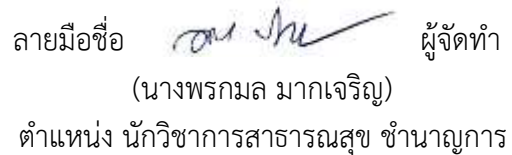 ลายมือชื่อ ผู้จัดทำ
(นางพรกมล มากเจริญ)
ตำแหน่ง นักวิชาการสาธารณสุข ชำนาญการ